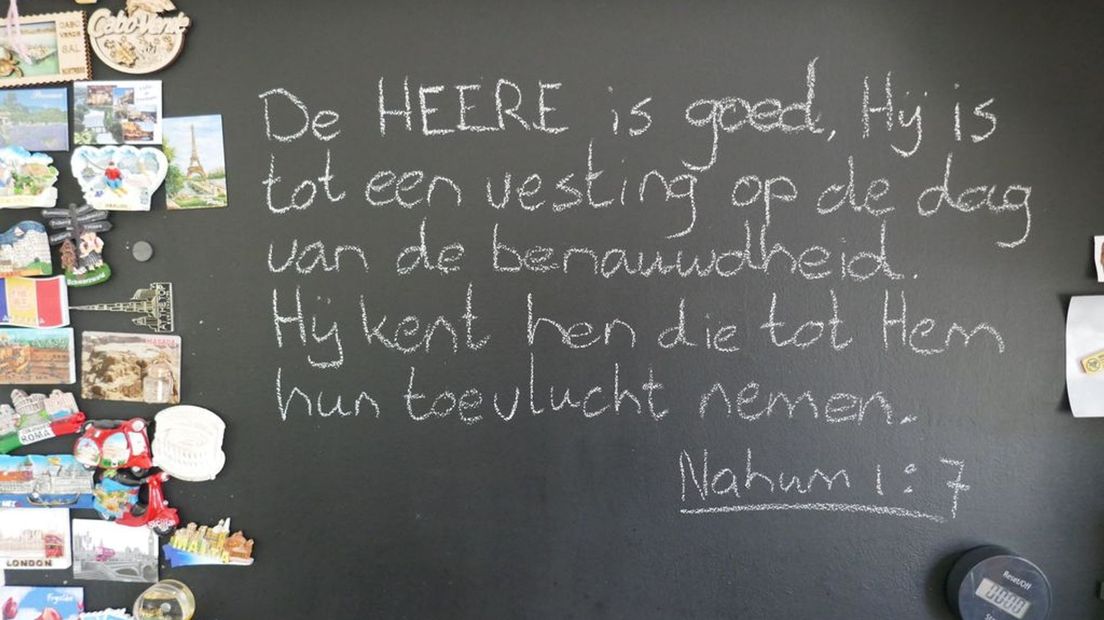 De HEERE is goed, Hij is
tot een vesting op de dag
van de benauwdheid.
Hij kent hen die tot Hem
hun toevlucht nemen.
Nahum 1:7
Cabo Verde
CABO
VERDE
SAL
MASADA
ROMA
LONDON
MALTA
AT THE TOP
Reset/Off